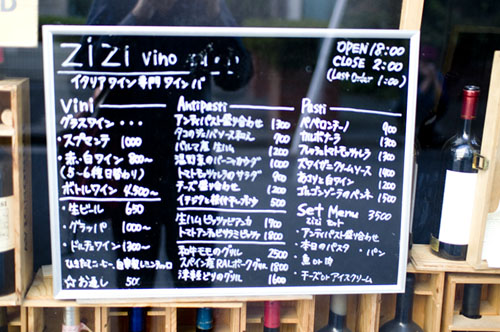 ZiZi vino
OPEN 18:00
CLOSE 2:00
(Last Order 1:00)
イタリアワイン専門ワインバー
Vini
グラスワイン…
・スプマンテ 1000
・赤・白ワイン 800〜
(5〜6種日替わり)
ボトルワイン 4,500〜
・生ビール 650
・グラッパ 1000〜
・ドルチェワイン 1300〜
☆お通し 500
Antipasti
アンティパスト盛り合わせ 1300
タコのジェノベーゼ和え 900
パルマ産 生ハム 1200
温野菜のバーニャカウダ 1000
トマトモッツァレラのサラダ 900
チーズ盛り合わせ 1200
イタリアンな根付キャンポゥ 500
生ハムピッツァビアンカ 1700
トマトアンチョビラミピッツァ 1800
和牛モモのグリル 2500
スペイン産BALポークグリル 1800
津軽どりのグリル 1600
Pasti
ペペロンチーノ 900
カルボナーラ 1300
フレッシュトマトモッツァレラ 1300
スカイザニクリームソース 1400
あさりと白ワイン 1200
ゴルゴンゾーラのペンネ 1500
Set Menu 3500
ZiZi
・アンティパスト盛り合わせ
・本日のパスタ ・パン
・魚 or 肉
・チーズ or アイスクリーム